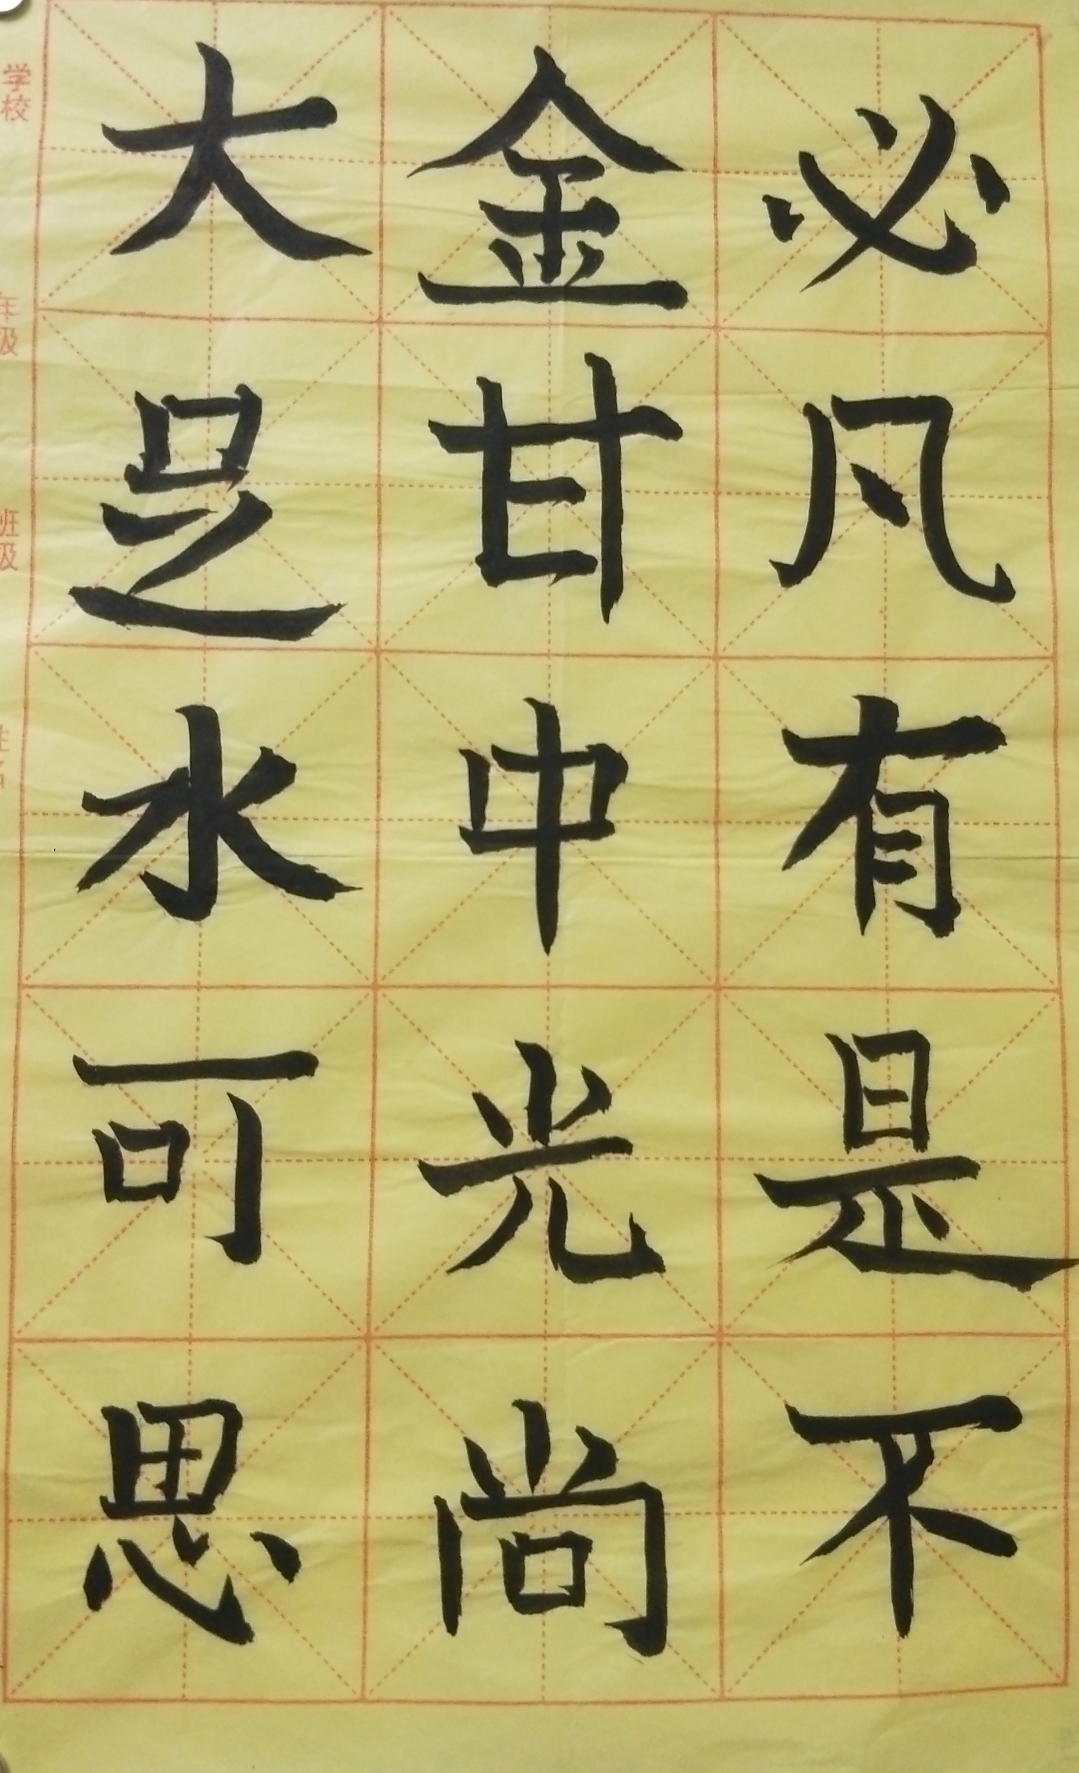 必凡有是不
金甘中光尚
大足水可思
学校
年级
班级
姓名